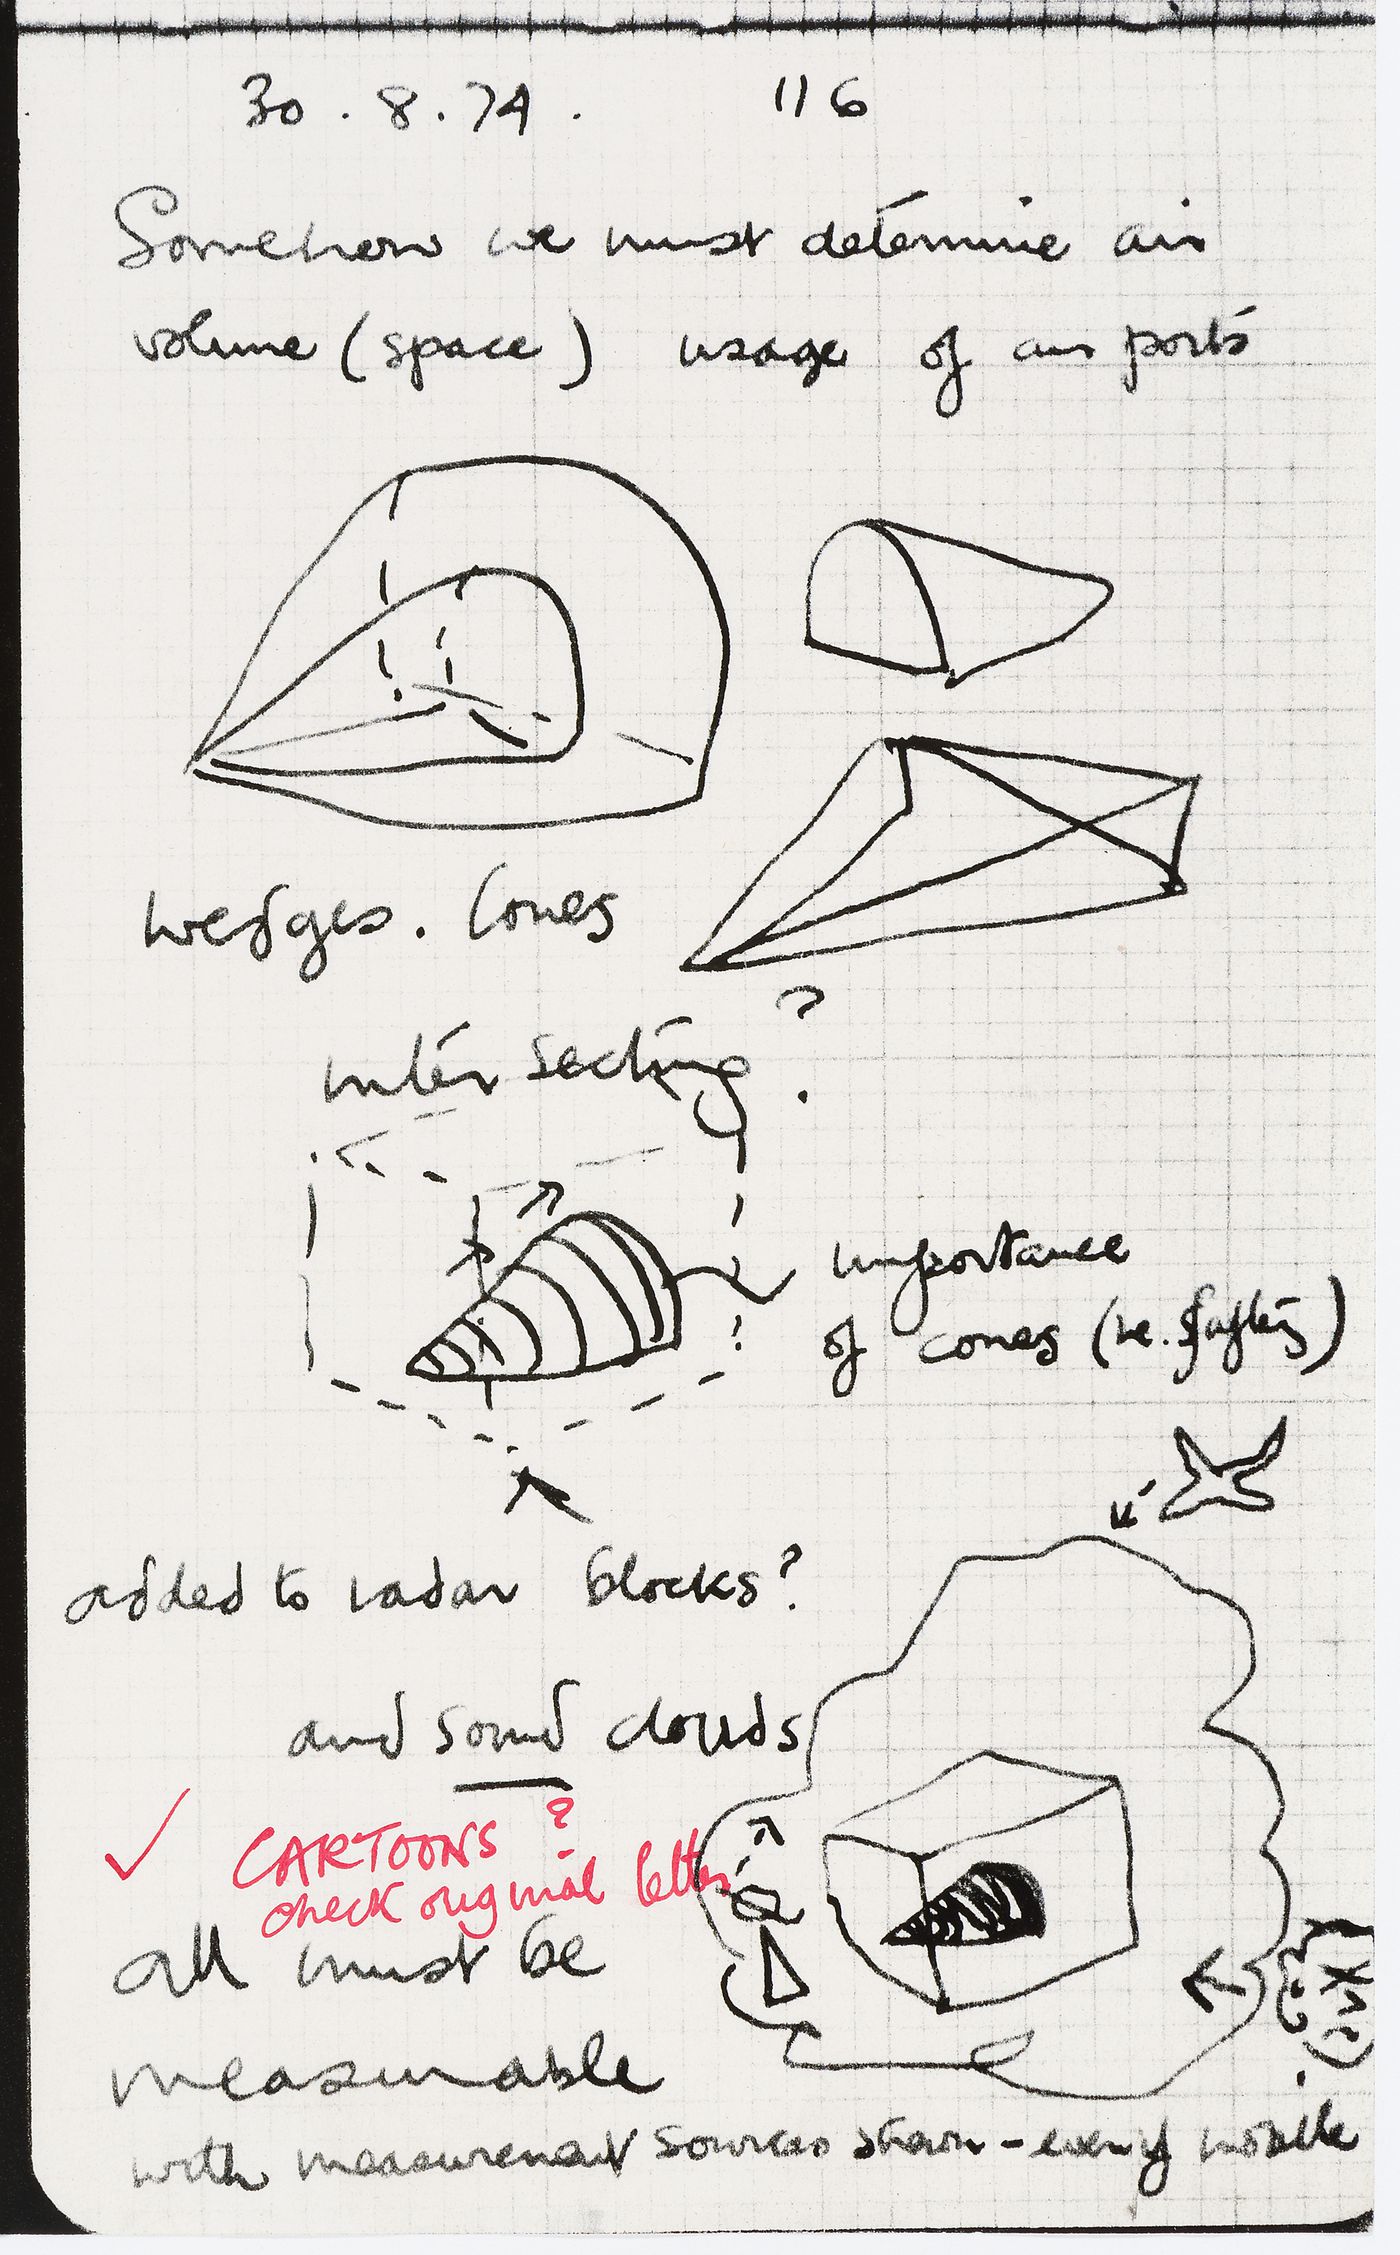 30 . 8 . 74 .
116
Somehow we must determine air
volume (space) usage of air ports
wedges . Cones
inter secting ?
importance
of cones (re. safety)
added to radar blocks?
and sound clouds
CARTOONS ?
check original letter
all must be
measurable
with measurement sources shown - even if mobile